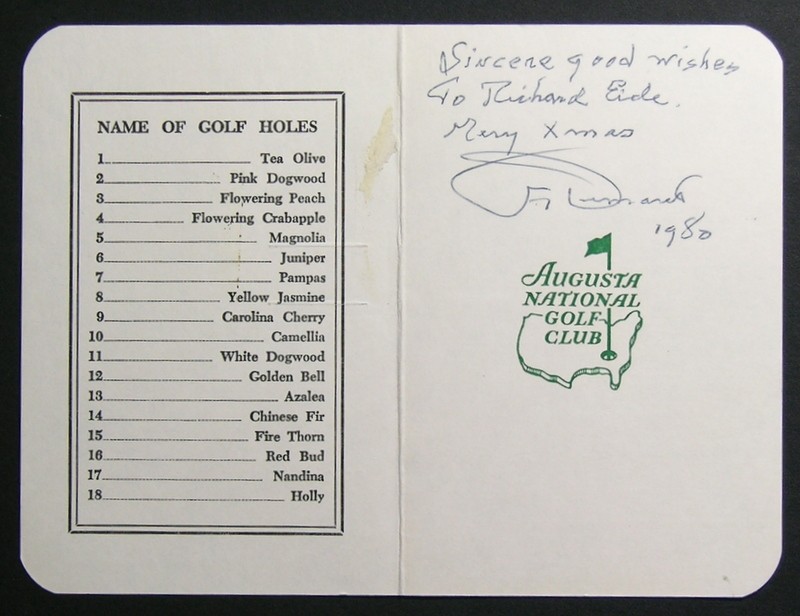 NAME OF GOLF HOLES
1 Tea Olive
2 Pink Dogwood
3 Flowering Peach
4 Flowering Crabapple
5 Magnolia
6 Juniper
7 Pampas
8 Yellow Jasmine
9 Carolina Cherry
10 Camellia
11 White Dogwood
12 Golden Bell
13 Azalea
14 Chinese Fir
15 Fire Thorn
16 Red Bud
17 Nandina
18 Holly
Sincere good wishes
To Richard Eide.
Merry Xmas
1980
AUGUSTA
NATIONAL
GOLF
CLUB